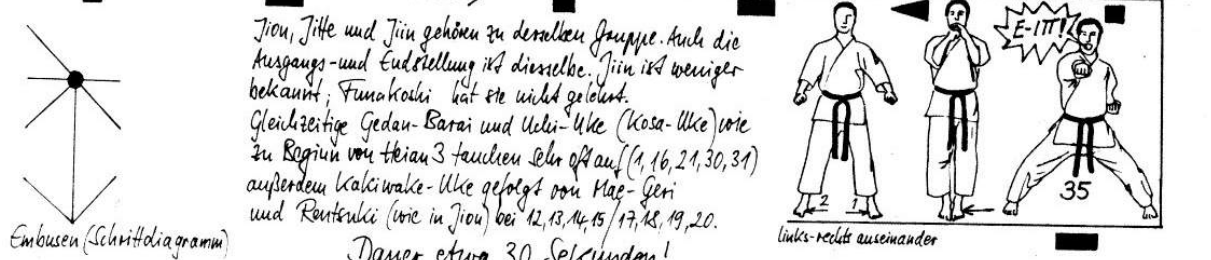 Jion, Jitte und Jiin gehören zu derselben Gruppe. Auch die
Ausgangs- und Endstellung ist diesselbe. Jiin ist weniger
bekannt; Funakoshi hat sie nicht gelehrt.
Gleichzeitige Gedan-Barai und Uchi-Uke (Kosa-Uke) wie
zu Beginn von Heian 3 tauchen sehr oft auf (1, 16, 21, 30, 31)
außerdem Kakiwake-Uke gefolgt von Mae-Geri
und Rentsuki (wie in Jion) bei 12, 13, 14, 15 / 17, 18, 19, 20.
Dauer etwa 30 Sekunden!
Embusen (Schrittdiagramm)
E-ITT!
35
2 1
links-rechts auseinander